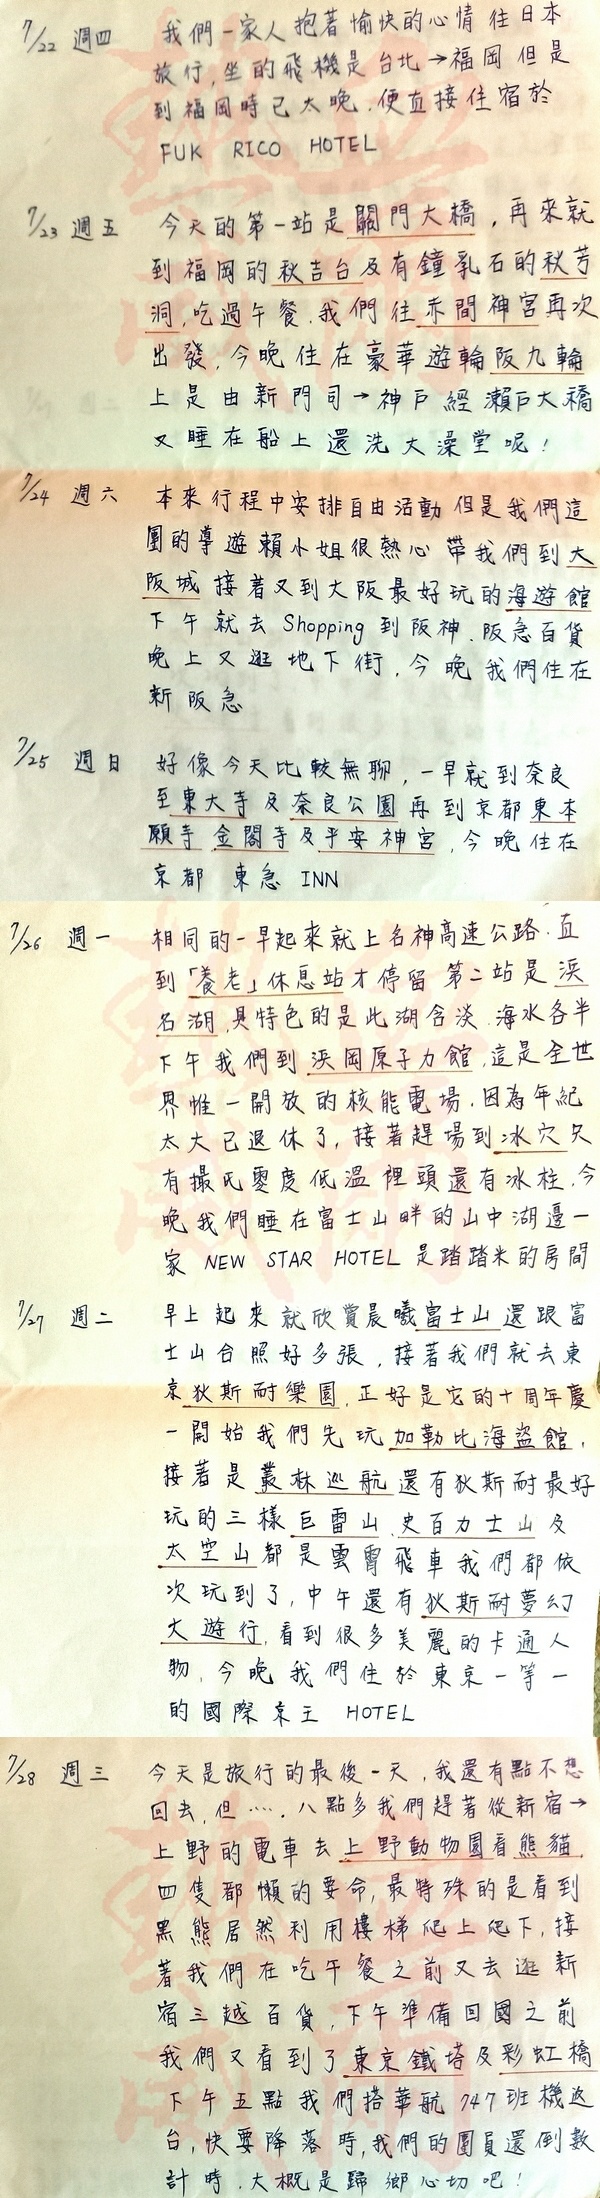 7/22 週四 我們一家人抱著愉快的心情往日本
旅行,坐的飛機是台北→福岡但是
到福岡時已太晚.便直接住宿於
FUK RICO HOTEL
7/23 週五 今天的第一站是關門大橋,再來就
到福岡的秋吉台及有鐘乳石的秋芳
洞,吃過午餐.我們往赤間神宮再次
出發,今晚住在豪華遊輪阪九輪
上是由新門司→神戶經瀨戶大橋
又睡在船上還洗大澡堂呢!
7/24 週六 本來行程中安排自由活動但是我們這
團的導遊賴小姐很熱心帶我們到大
阪城接著又到大阪最好玩的海遊館
下午就去Shopping到阪神.阪急百貨
晚上又逛地下街,今晚我們住在
新阪急
7/25 週日 好像今天比較無聊,一早就到奈良
至東大寺及奈良公園再到京都東本
願寺金閣寺及平安神宮,今晚住在
京都東急INN
7/26 週一 相同的一早起來就上名神高速公路.直
到「養老」休息站才停留第二站是浜
名湖,具特色的是此湖含淡.海水各半
下午我們到浜岡原子力館,這是全世
界惟一開放的核能電場.因為年紀
太大已退休了,接著趕場到冰穴
有攝氏零度低溫裡頭還有冰柱,今
晚我們睡在富士山畔的山中湖邊一
家 NEW STAR HOTEL 是踏踏米的房間
7/27 週二 早上起來就欣賞晨曦富士山還跟富
士山合照好多張,接著我們就去東
京狄斯耐樂園,正好是它的十周年慶
一開始我們先玩加勒比海盜館,
接著是叢林巡航還有狄斯耐最好
玩的三樣巨雷山.史百力士山及
太空山都是雲霄飛車我們都依
次玩到了,中午還有狄斯耐夢幻
大遊行,看到很多美麗的卡通人
物,今晚我們住於東京一等一
的國際京王 HOTEL
7/28 週三 今天是旅行的最後一天,我還有點不想
回去,但.....八點多我們趕著從新宿→
上野的電車去上野動物園看熊貓,
四隻都懶的要命,最特殊的是看到
黑熊居然利用樓梯爬上爬下,接
著我們在吃午餐之前又去逛新
宿三越百貨,下午準備回國之前
我們又看到了東京鐵塔及彩虹橋
下午五點我們搭華航747班機返
台,快要降落時,我們的團員還倒數
計時.大概是歸鄉心切吧!